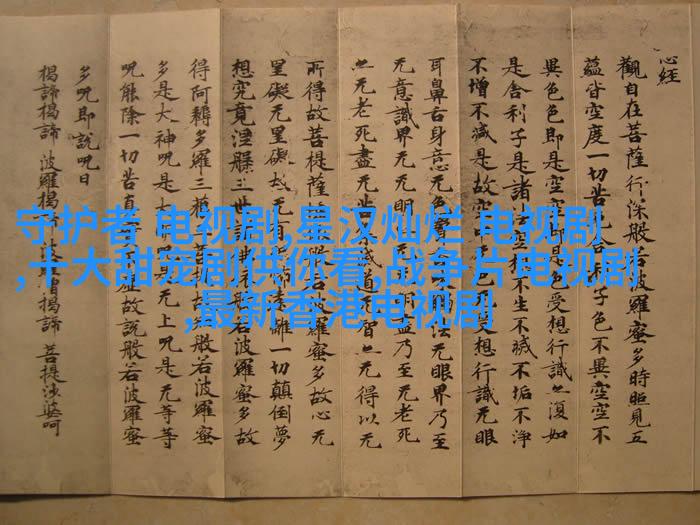 心經
觀自在菩薩行深般若波羅蜜多時照見五
蘊皆空度一切苦厄舍利子色不異空空不
異色色即是空空即是色受想行識亦復如
是舍利子是諸空相不生不滅不垢不淨
不增不減是故空受想行識无眼
耳鼻舌身意无色聲觸法无眼界乃至
无意識界无无明盡乃至无老死
亦无老死盡无苦滅道无智亦无得以无
所得故菩提薩般若波羅蜜多故心无
罣礙无罣礙故无有遠離一切顛倒夢
想究竟涅槃三世諸般若波羅蜜多故
得阿耨多羅三菩提故般若波羅蜜
多是大神呪是大是无上呪是无等等
呪能除一切苦真虛故說般若波羅蜜
多呪即說呪曰
揭諦揭諦 波羅揭僧揭諦 菩提薩婆呵
守护者 电视剧,星汉灿烂 电视剧
,十大甜宠剧供你看,战争片电视剧
,最新香港电视剧